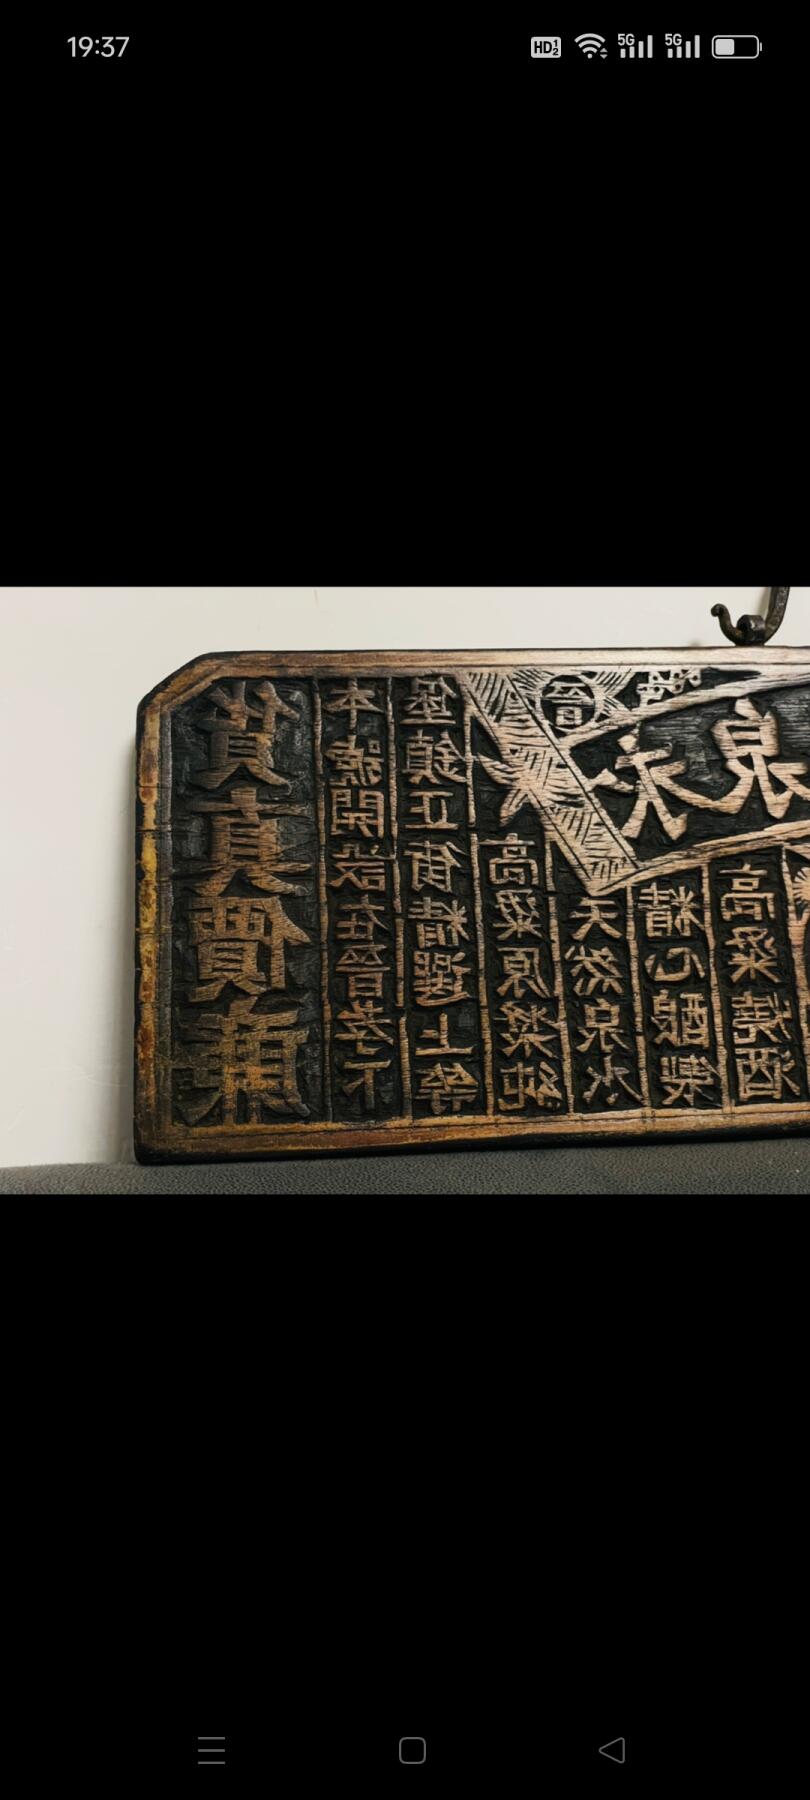 19:37
HD 5G 5G
貨真價廉
本號開設在晉孝下
堡鎮正街精選上等
高粱原漿
晉
永泉
天然泉水
精心釀製
高粱燒酒